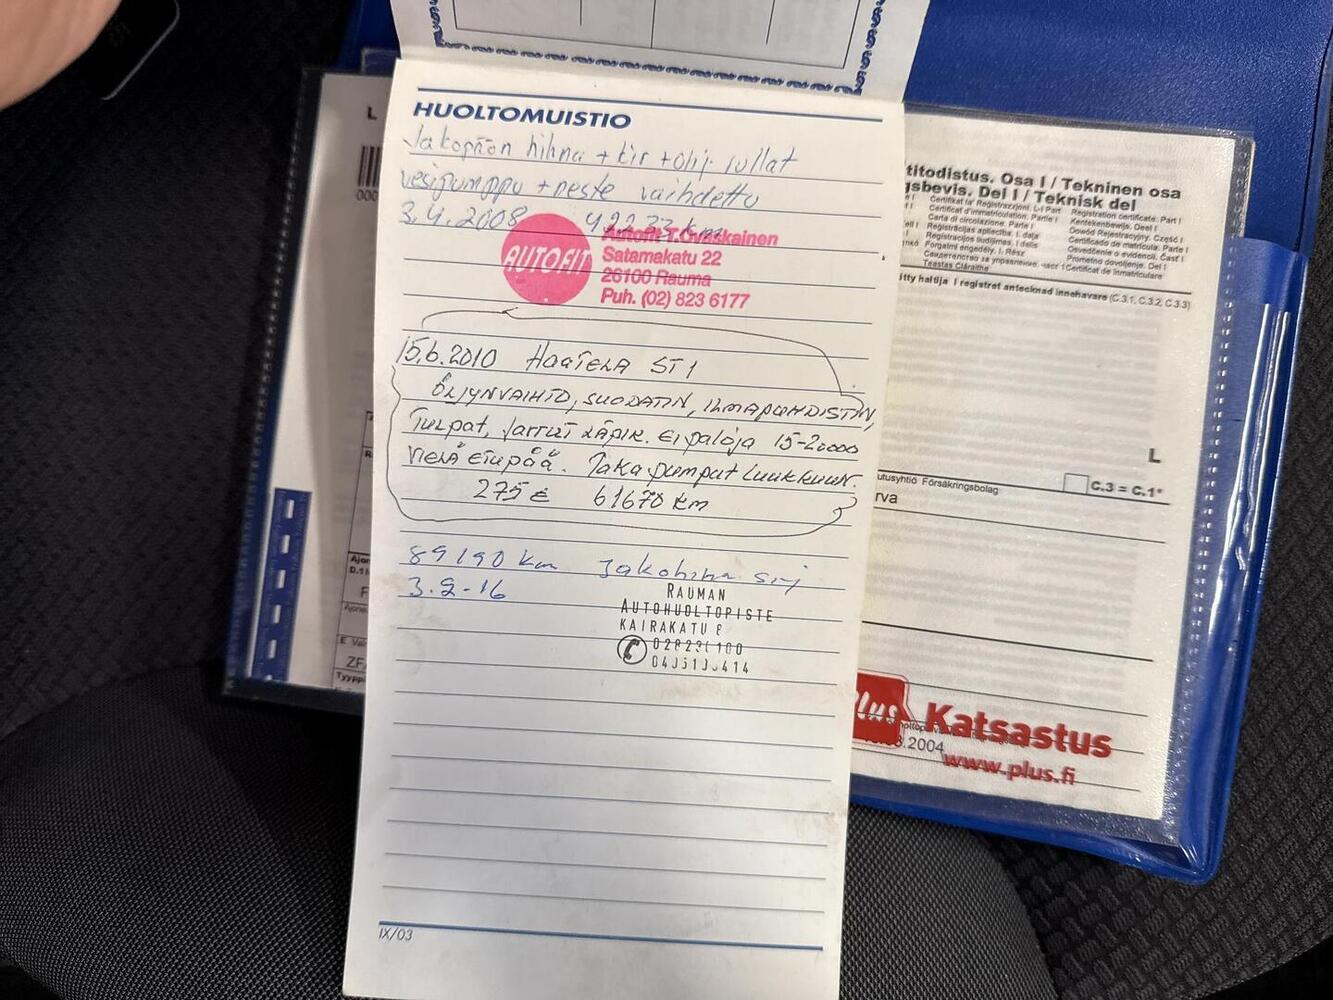 HUOLTOMUISTIO
Jakopään hihna + kir + ohj. rullat
vesipumppu + neste vaihdettu
3.4.2008 42233 km
AUTOFIT
Satamakatu 22
26100 Rauma
Puh. (02) 823 6177
15.6.2010 HAATELA ST1
ÖLJYNVAIHTO, SUODATIN, ILMAPUHDISTIN,
Tulpat, Jarrut läpik. Ei paloja 15-20000
vielä etupää. Jakapumput Luukkuun.
275 € 61670 km
89190 km Jakohihna srj
3.2-16
RAUMAN
AUTOHUOLTOPISTE
KAIRAKATU 8
IX/03
titodistus. Osa I / Tekninen osa
gsbevis. Del I / Teknisk del
Certificat d'immatriculation. Partie I
Carta di circolazione. Parte I
Reģistrācijas apliecība. I. daļa
Registracijos liudijimas. I dalis
Forgalmi engedély. I. Rész
Teastas Cláraithe
Registration certificate. Part I
Kentekenbewijs. Deel I
Dowód Rejestracyjny. Część I
Certificado de matrícula. Parte I
Osvedčenie o evidencii. Časť I
Prometno dovoljenje. Del I
Certificat de înmatriculare
itty haltija I registret antecknad innehavare (C.3.1, C.3.2, C.3.3)
L
C.3 = C.1*
utusyhtiö Försäkringsbolag
rva
L
000
ZF
Tyypp
Plus Katsastus
.2004
www.plus.fi